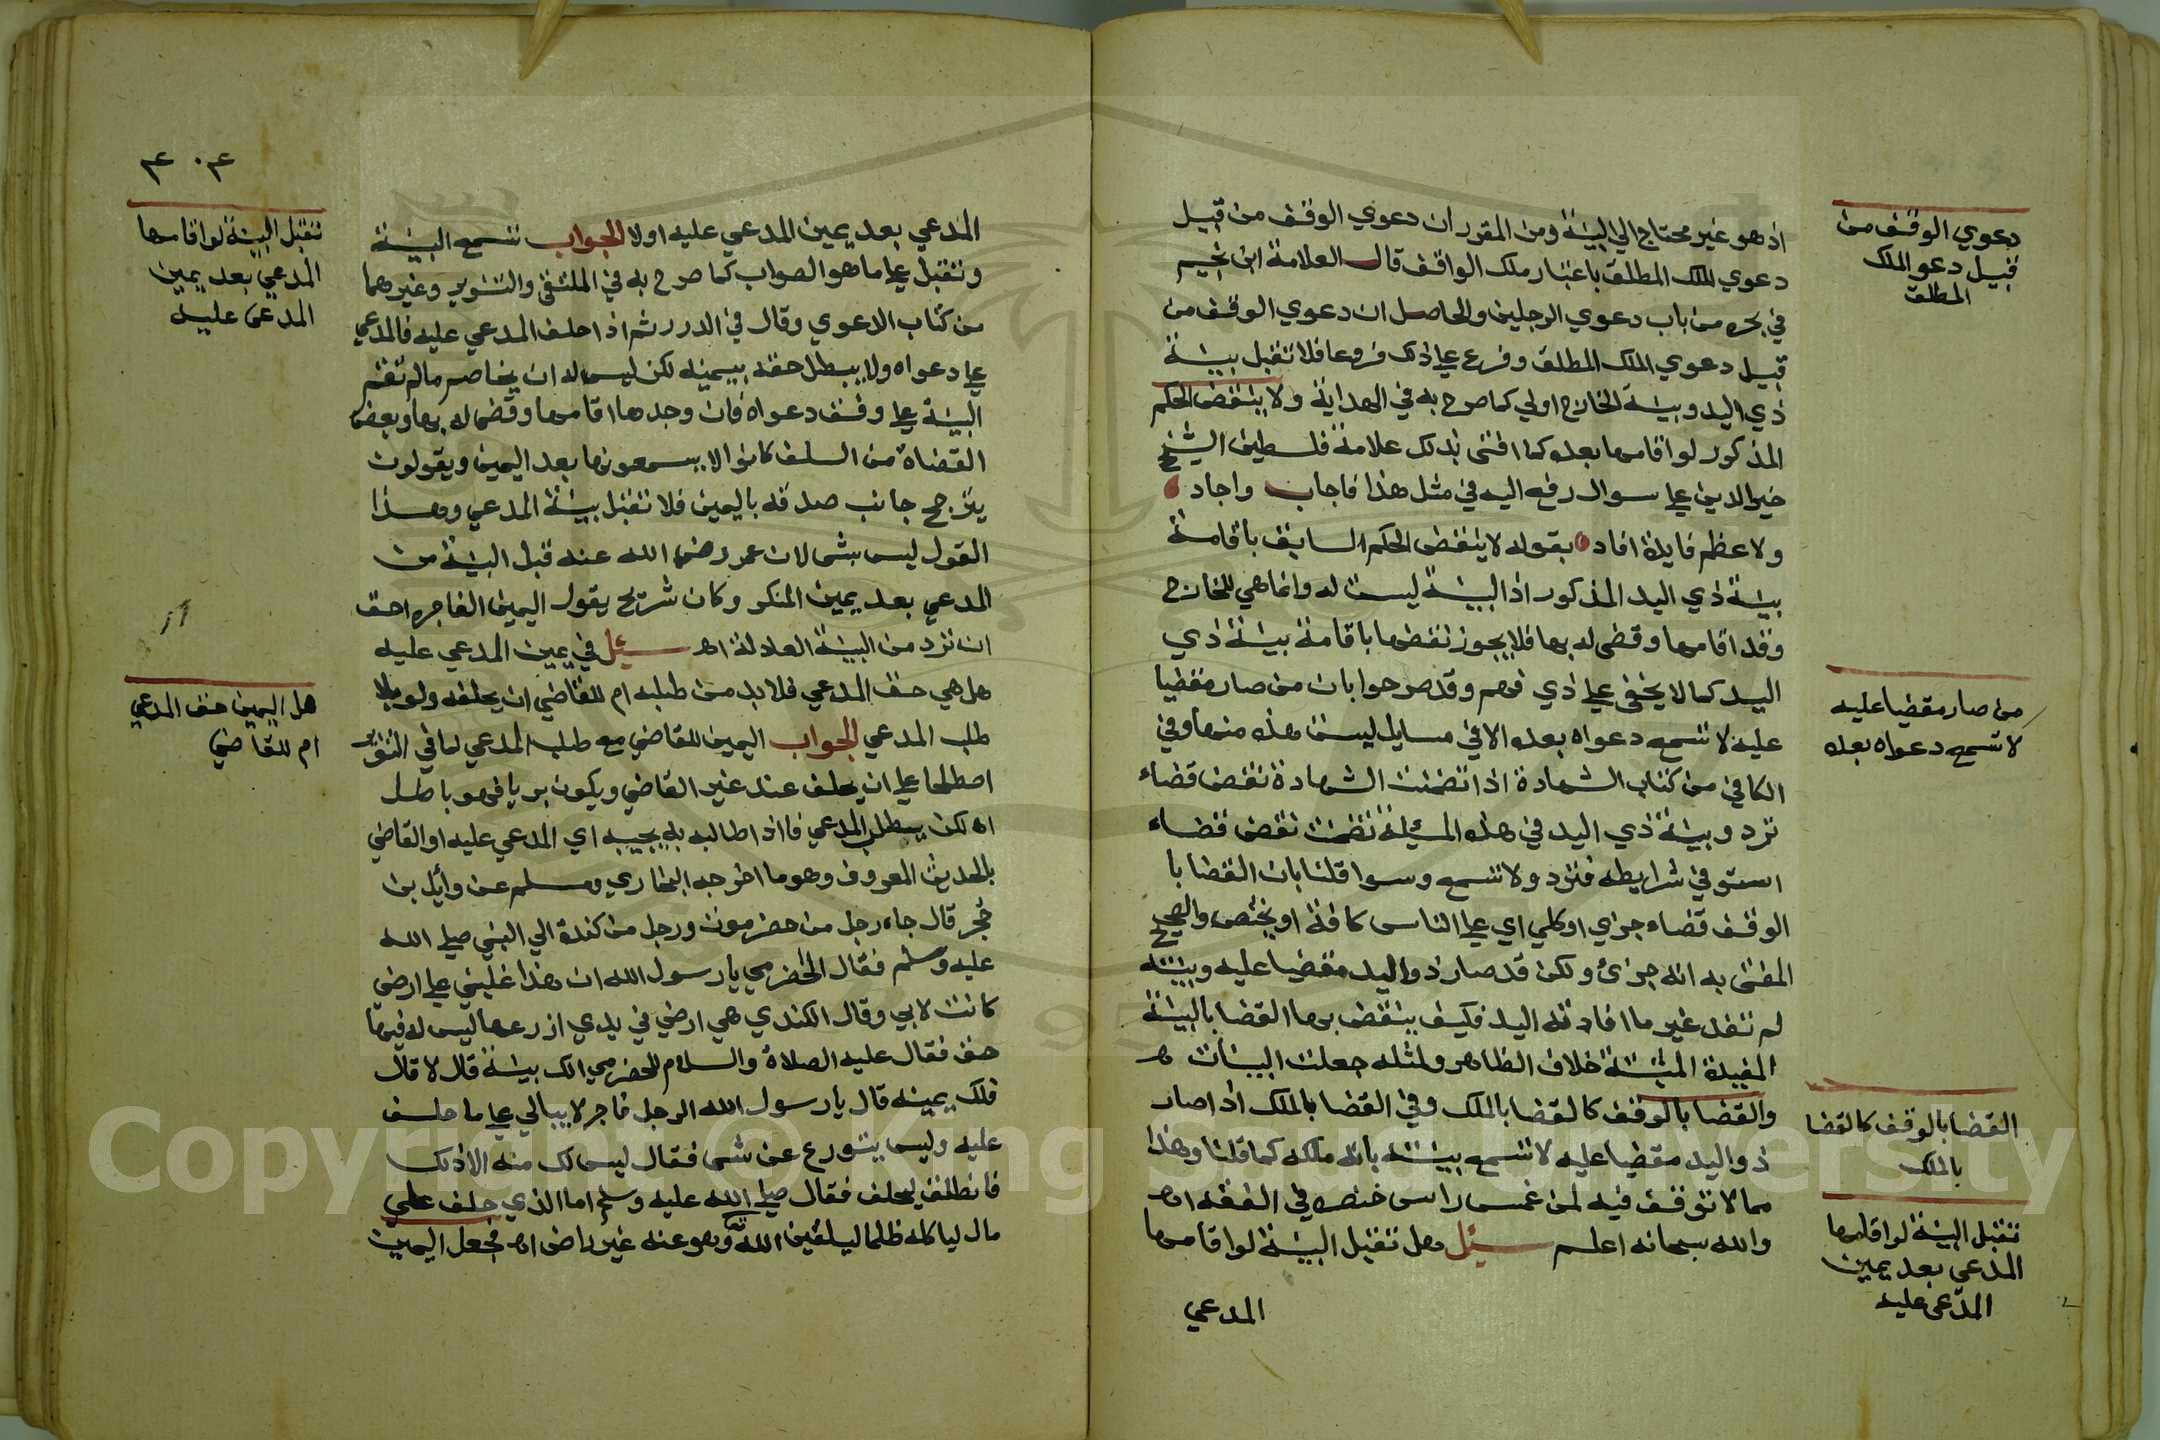 اذ هو غير محتاج الي البينة ومن المقرر ان دعوي الوقف من قبيل
دعوي الملك المطلق باعتبار ملك الواقف قال العلامة ابن نجيم
في بحره من باب دعوي الرجلين والحاصل ان دعوي الوقف من
قبيل دعوي الملك المطلق وفرع علي ذلك فروعا فلا تقبل بينة
ذي اليد وبينة الخارج اولي كما صرح به في الهداية ولا ينتقض الحكم
المذكور لو اقامها بعده كما افتي بذلك علامة فلسطين الشيخ
خير الدين علي سوال رفع اليه في مثل هذا فاجاب واجاد
ولاعظم فايدة افاد بقوله لا ينتقض الحكم السابق باقامة
بينة ذي اليد المذكور اذ البينة ليست له وانما هي للخارج
وقد اقامها وقضي له بها فلا يجوز نقضها باقامة بينة ذي
اليد كما لا يخفي علي ذي فهم وقد صرحوا بان من صار مقضيا
عليه لا تسمع دعواه بعده الا في مسايل ليست هذه منها وفي
الكافي من كتاب الشهادة اذا تضمنت الشهادة نقض قضاء
ترد وبينة ذي اليد في هذه المسئلة تضمنت نقض قضاء
استوفي شرايطه فترد ولا تسمع وسوا قلنا بان القضا با
الوقف قضاء جزي او كلي اي علي الناس كافة او يختص والصحيح
المفتي به انه جزئ ولكن قد صار ذو اليد مقضيا عليه وبينته
لم تفد غير ما افادته اليد فكيف ينتقض بها القضا بالبينة
المفيدة المثبتة خلاف الظاهر ولمثله جعلت البينات
والقضا بالوقف كالقضا بالملك وفي القضا بالملك اذا صار
ذو اليد مقضيا عليه لا تسمع بينته بانه ملكه كما قلنا وهذا
مما لا توقف فيه لمن غمس راس خنصره في الفقه اه
والله سبحانه اعلم سئل هل تقبل البينة لو اقامها
المدعي
دعوي الوقف من
قبيل دعو الملك
المطلق
من صار مقضيا عليه
لا تسمع دعواه بعده
القضا بالوقف كالقضا
بالملك
تقبل البينة لو اقامها
المدعي بعد يمين
المدعي عليه
٣٠٣
المدعي بعد يمين المدعي عليه اولا الجواب تسمع البينة
وتقبل علي ما هو الصواب كما صرح به في الملتقي والتنوير وغيرهما
من كتاب الدعوي وقال في الدرر ثم اذا حلف المدعي عليه فالمدعي
علي دعواه ولا يبطل حقه بيمينه لكن ليس له ان يخاصم ما لم تقم
البينة علي وفق دعواه فان وجدها اقامها وقضي له بها وبعض
القضاة من السلف كانوا لا يسمعونها بعد اليمين ويقولون
يترجح جانب صدقه باليمين فلا تقبل بينة المدعي وهذا
القول ليس بشي لان عمر رضي الله عنه قبل البينة من
المدعي بعد يمين المنكر وكان شريح يقول اليمين الفاجره احق
ان ترد من البينة العدلة اه سئل في يمين المدعي عليه
هل هي حق المدعي فلا بد من طلبه ام للقاضي ان يحلفه ولو بلا
طلب المدعي الجواب اليمين للقاضي مع طلب المدعي لما في التنوير
اصطلحا علي ان يحلف عند غير القاضي ويكون بريا فهو باطل
اه لكن بطلب المدعي فاذا طالبه به يجيبه اي المدعي عليه او القاضي
بالحديث المعروف وهو ما اخرجه البخاري ومسلم عن وائل بن
حجر قال جاء رجل من حضرموت ورجل من كندة الي النبي صلي الله
عليه وسلم فقال الحضرمي يا رسول الله ان هذا غلبني علي ارضي
كانت لابي وقال الكندي هي ارضي في يدي ازرعها ليس له فيها
حق فقال عليه الصلاة والسلام للحضرمي الك بينة قال لا قال
فلك يمينه قال يا رسول الله الرجل فاجر لا يبالي علي ما حلف
عليه وليس يتورع عن شي فقال ليس لك منه الا ذلك
فانطلق ليحلف فقال صلي الله عليه وسلم اما الذي حلف علي
مال لياكله ظلما ليلقين الله وهو عنه غير راض اه فجعل اليمين
تقبل البينة لو اقامها
المدعي بعد يمين
المدعي عليه
هل اليمين حق المدعي
ام للقاضي
Copyright © King Saud University